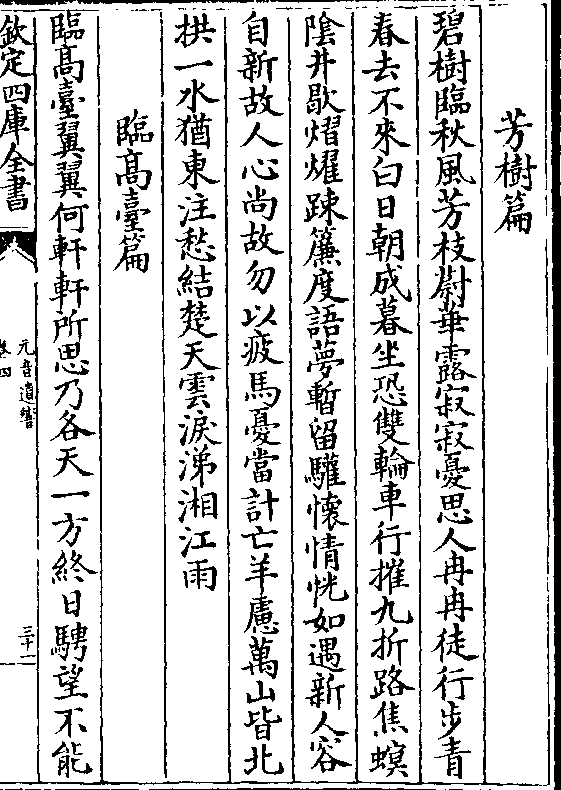 芳樹篇
碧樹臨秋風芳枝蔚華露寂寂憂思人冉冉徒行步青
春去不來白日朝成暮坐恐雙輪車行摧九折路焦螟
陰井歇熠燿踈簾度語夢暫留驩懷情恍如遇新人容
自新故人心尚故勿以疲馬憂當計亡羊慮萬山皆北
拱一水猶東注愁結楚天雲淚涕湘江雨
臨髙臺篇
臨髙臺翼翼何軒軒所思乃各天一方終日騁望不能
欽定四庫全書
元音遺響
卷四
三十一